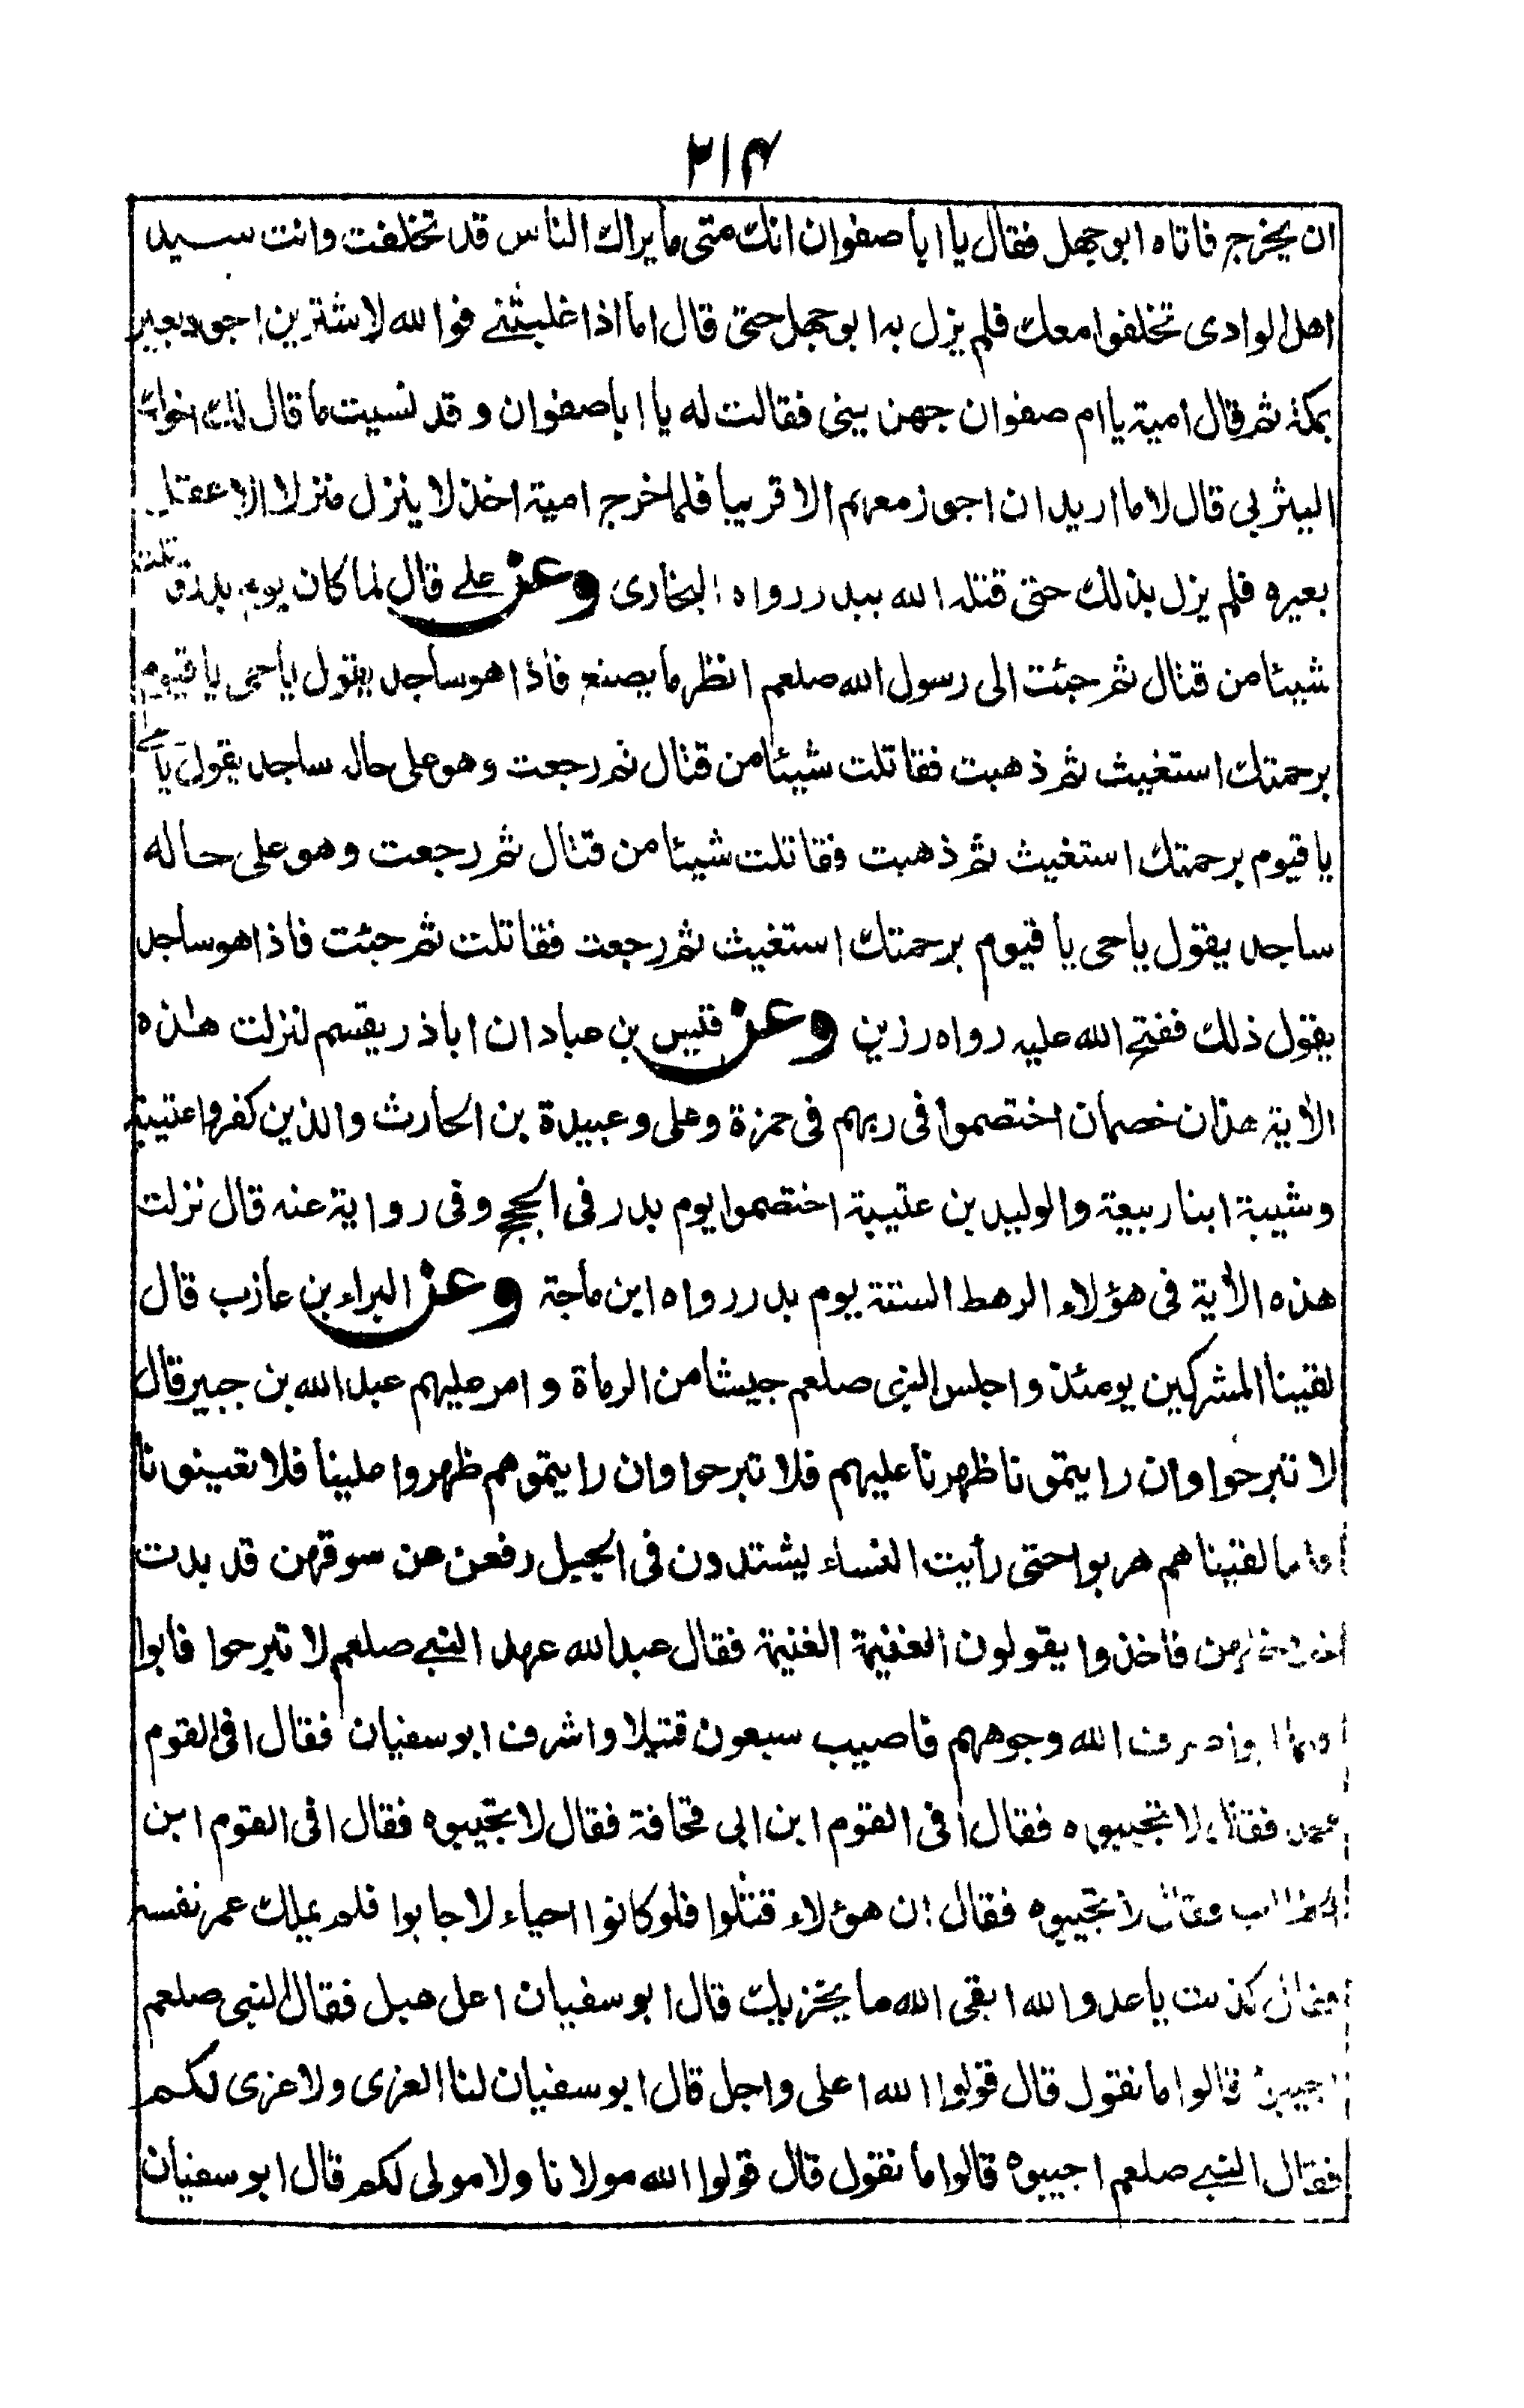 ٢١٤
ان يخرج فاتاه ابوجهل فقال يا ابا صفوان انك متى ما يراك الناس قد تخلفت وانت سيد
اهل الوادى تخلفوا معك فلم يزل به ابوجهل حتى قال اما اذا غلبتنے فوالله لاشترين اجود بعير
بمكة ثم قال امية يا ام صفوان جهزينى فقالت له يا ابا صفوان وقد نسيت ما قال لك اخوك
اليثربى قال لا ما اريد ان اجوز معهم الا قريبا فلما خرج امية اخذ لا ينزل منزلا الا عقل
بعيره فلم يزل بذلك حتى قتله الله ببدر رواه البخارى وعن علے قال لما كان يوم بدر قاتلت
شيئا من قتال ثم جئت الى رسول الله صلعم انظر ما يصنع فاذا هو ساجد يقول يا حى يا قيوم
برحمتك استغيث ثم ذهبت فقاتلت شيئا من قتال ثم رجعت وهو على حاله ساجد يقول يا حے
يا قيوم برحمتك استغيث ثم ذهبت فقاتلت شيئا من قتال ثم رجعت وهو على حاله
ساجد يقول يا حى يا قيوم برحمتك استغيث ثم رجعت فقاتلت ثم جئت فاذا هو ساجد
يقول ذلك ففتح الله عليه رواه رزين وعن قيس بن عباد ان اباذر يقسم لنزلت هذه
الأية هذان خصمان اختصموا فى ربهم فى حمزة وعلى وعبيدة بن الحارث والذين كفروا عتيبة
وشيبة ابنا ربيعة والوليد بن عتيبة اختصموا يوم بدر فى الحجج وفى رواية عنه قال نزلت
هذه الأية فى هؤلاء الرهط الستة يوم بدر رواه ابن ماجة وعن البراء بن عازب قال
لقينا المشركين يومئذ واجلس النبى صلعم جيشا من الرماة وامر عليهم عبد الله بن جبير قال
لا تبرحوا وان رايتمونا ظهرنا عليهم فلا تبرحوا وان رايتموهم ظهروا علينا فلا تعينونا
لقيناهم هربوا حتى رأيت النساء يشتددون فى الجبل رفعن عن سوقهن قد بدت
فاخذوا يقولون الغنيمة الغنيمة فقال عبدالله عهد النبے صلعم لا تبرحوا فابوا
الله وجوههم فاصيب سبعون قتيلا واشرف ابوسفيان فقال افى القوم
محمد فقال لا تجيبوه فقال أفى القوم ابن ابى قحافة فقال لا تجيبوه فقال افى القوم ابن
الخطاب فقال لا تجيبوه فقال ان هؤلاء قتلوا فلو كانوا احياء لاجابوا فلم يملك عمر نفسه
فقال كذبت يا عدو الله ابقى الله ما يخزيك قال ابوسفيان اعل هبل فقال النبى صلعم
اجيبوه قالوا ما نقول قال قولوا الله اعلى واجل قال ابوسفيان لنا العزى ولا عزى لكم
فقال النبے صلعم اجيبوه قالوا ما نقول قال قولوا الله مولانا ولا مولى لكم قال ابوسفيان